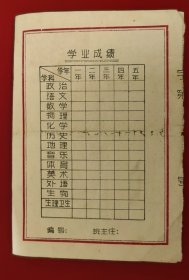 学业成绩
学年 一年 二年 三年 四年 五年
学科
政治
语文
数学
物理
化学
历史
地理
音乐
体育
美术
外语
生物
生理卫生
编号: 班主任: